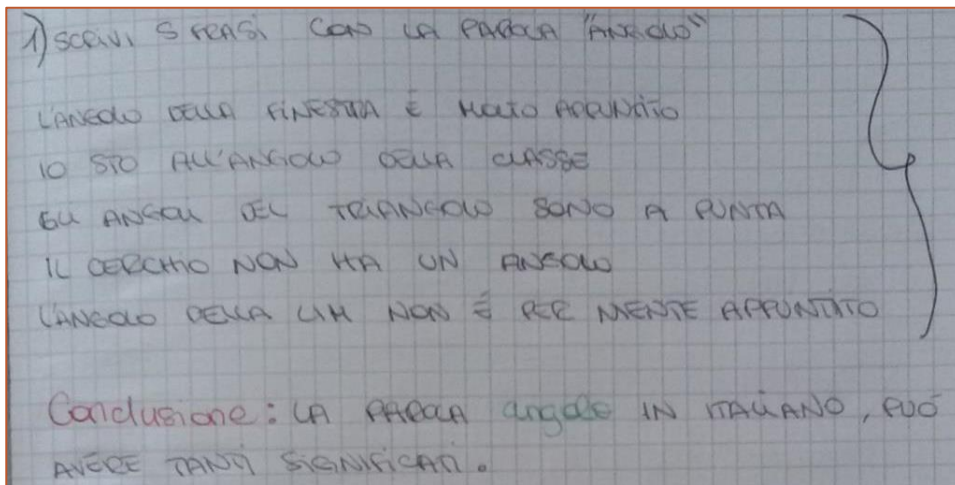 1) SCRIVI 5 FRASI CON LA PAROLA "ANGOLO"
L'ANGOLO DELLA FINESTRA È MOLTO APPUNTITO
IO STO ALL'ANGOLO DELLA CLASSE
GLI ANGOLI DEL TRIANGOLO SONO A PUNTA
IL CERCHIO NON HA UN ANGOLO
L'ANGOLO DELLA LIM NON É PER NIENTE APPUNTITO
Conclusione: LA PAROLA angolo IN ITALIANO, PUÓ
AVERE TANTI SIGNIFICATI.